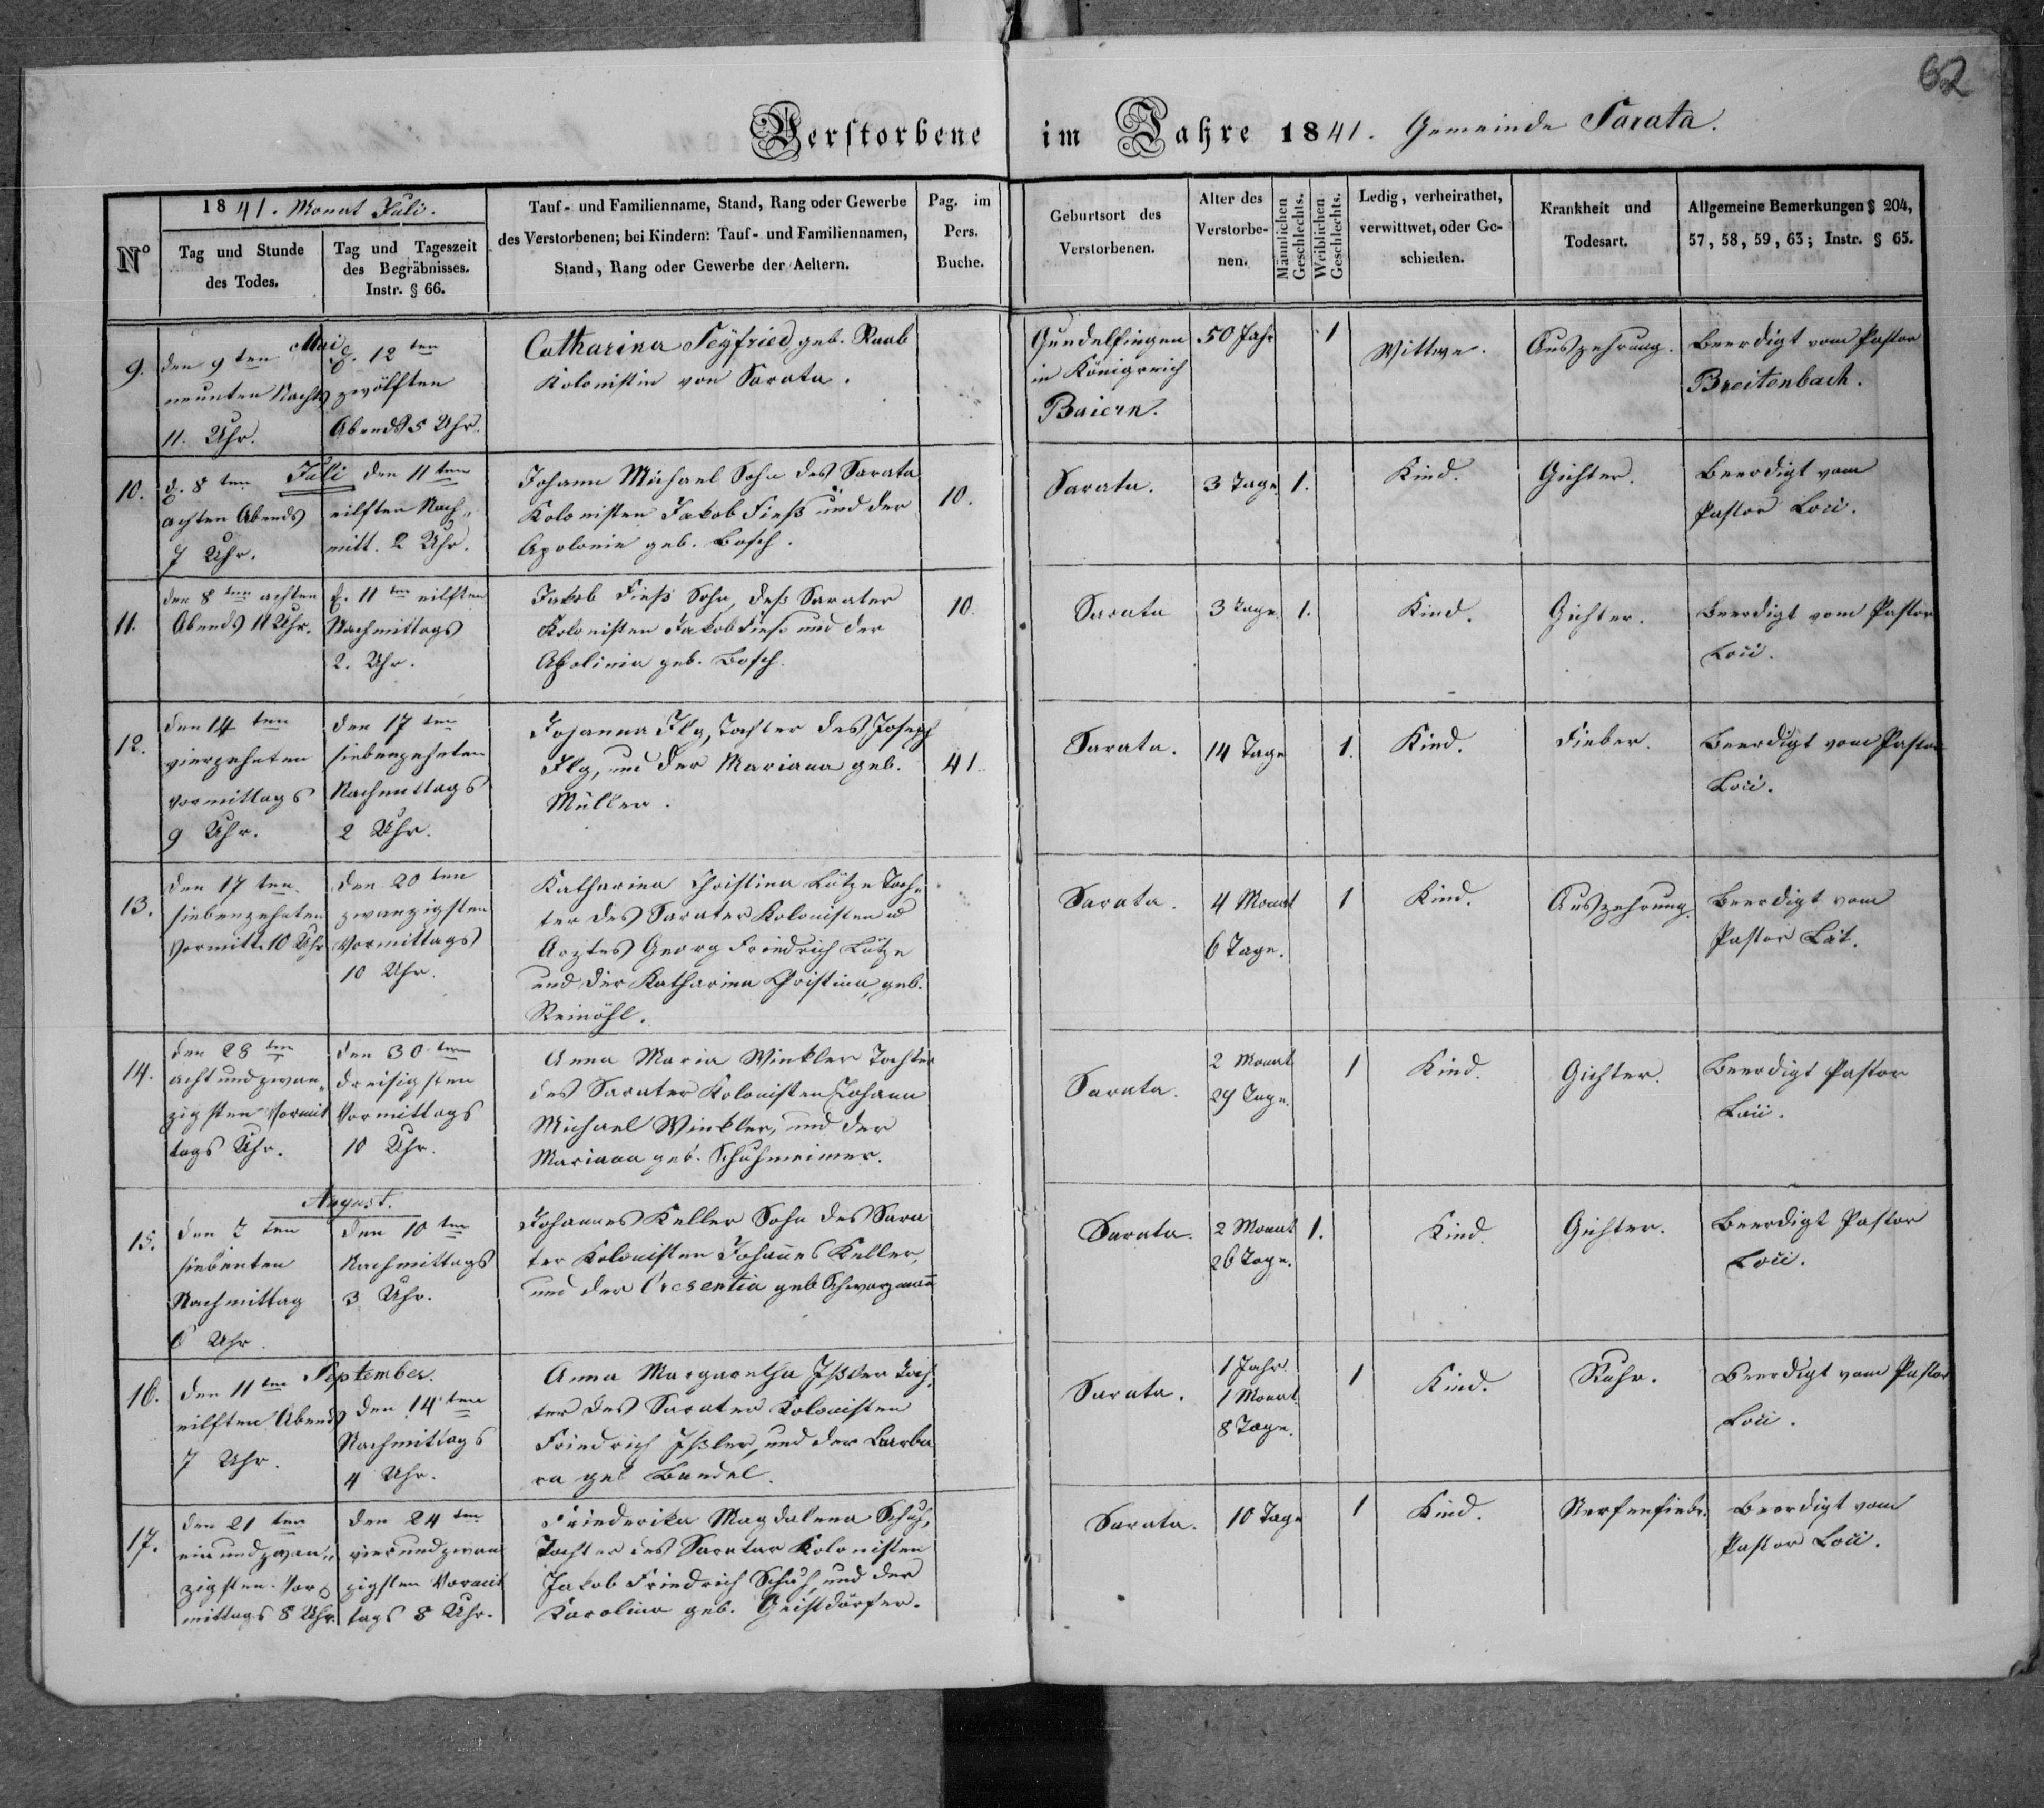 62
Verstorbene im Jahre 1841. Gemeinde Sarata.
No
1841. Monat Juli.
Tag und Stunde
des Todes.
Tag und Tageszeit
des Begräbnisses.
Instr. § 66.
Tauf- und Familienname, Stand, Rang oder Gewerbe
des Verstorbenen; bei Kindern: Tauf- und Familiennamen,
Stand, Rang oder Gewerbe der Aeltern.
Pag. im
Pers.
Buche.
Geburtsort des
Verstorbenen.
Alter des
Verstorbe-
nen.
Männlichen
Geschlechts.
Weiblichen
Geschlechts.
Ledig, verheirathet,
verwittwet, oder Ge-
schieden.
Krankheit und
Todesart.
Allgemeine Bemerkungen § 204,
57, 58, 59, 63; Instr. § 65.
Mai
9.
den 9ten
neunten Nachts
11. Uhr.
d. 12ten
zwölften
Abends 5 Uhr.
Catharina Seyfried, geb. Raab
Kolonistin von Sarata.
Gundelfingen
in Königreich
Baiern.
50 Jahr
1
Wittwe.
Auszehrung.
Beerdigt vom Pastor
Breitenbach.
Juli
10.
d. 8ten
achten Abends
7 Uhr.
den 11ten
eilften Nach-
mitt. 2 Uhr.
Johann Michael Sohn des Sarata
Kolonisten Jakob Fieß und der
Apolonie geb. Bosch.
10.
Sarata.
3 Tage
1.
Kind.
Gichter.
Beerdigt vom
Pastor
11.
den 8ten achten
Abends 11 Uhr.
d. 11ten eilften
Nachmittags
2. Uhr.
Jakob Fieß Sohn, deß Sarater
Kolonisten Jakob Fieß und der
Apolinia geb. Bosch.
10.
Sarata
3 Tage
1.
Kind.
Gichter.
Beerdigt vom Pastor
12.
den 14ten
vierzehnten
Vormittags
9 Uhr.
den 17ten
siebenzehnten
Nachmittags
2 Uhr.
Johanna Ilg, Tochter des Joseph
Ilg, und der Mariana geb.
Müller.
41.
Sarata.
14 Tage
1.
Kind.
Fieber.
Beerdigt vom Pastor
13.
den 17ten
siebenzehnten
Vormitt. 10 Uhr
den 20ten
zwanzigsten
Vormittags
10 Uhr.
Katharina Christina Lütze Toch-
ter des Sarater Kolonisten u
Arztes Georg Friedrich Lütze
und der Katharina Christina, geb.
Reinöhl.
Sarata.
4 Monat
6 Tage.
1
Kind.
Auszehrung.
Beerdigt vom
Pastor
14.
den 28ten
acht und zwan-
zigsten Vormit
tags Uhr.
den 30ten
dreisigsten
Vormittags
10 Uhr.
Anna Maria Winkler Tochter
des Sarater Kolonisten Johann
Michael Winkler, und der
Mariana geb. Schuhmeimer.
Sarata.
2 Monat
29 Tage.
1
Kind.
Gichter.
Beerdigt Pastor
August.
15.
den 7ten
siebenten
Nachmittag
6 Uhr
den 10ten
Nachmittags
3 Uhr.
Johannes Keller Sohn des Sara
ter Kolonisten Johannes Keller,
und der Cresentia geb Schwarzmann
Sarata.
2 Monat
26 Tage.
1.
Kind.
Gichter.
Beerdigt Pastor
September.
16.
den 11ten
eilften Abends
7 Uhr.
den 14ten
Nachmittags
4 Uhr.
Anna Margaretha Ißler Toch-
ter des Sarater Kolonisten
Friedrich Ißler, und der Barba
ra geb Bandel.
Sarata.
1 Jahr.
1 Monat
8 Tage.
1
Kind.
Ruhr.
Beerdigt vom Pastor
17.
den 21ten
ein und zwan-
zigsten Vor-
mittags 8 Uhr.
den 24ten
vier und zwan
zigsten Vormit
tags 8 Uhr.
Friederika Magdalena Schuh,
Tochter des Saratar Kolonisten
Jakob Friedrich Schuh, und der
Karolina geb. Geistdörfer.
Sarata.
10 Tage
1
Kind.
Nerfenfieber.
Beerdigt vom
Pastor